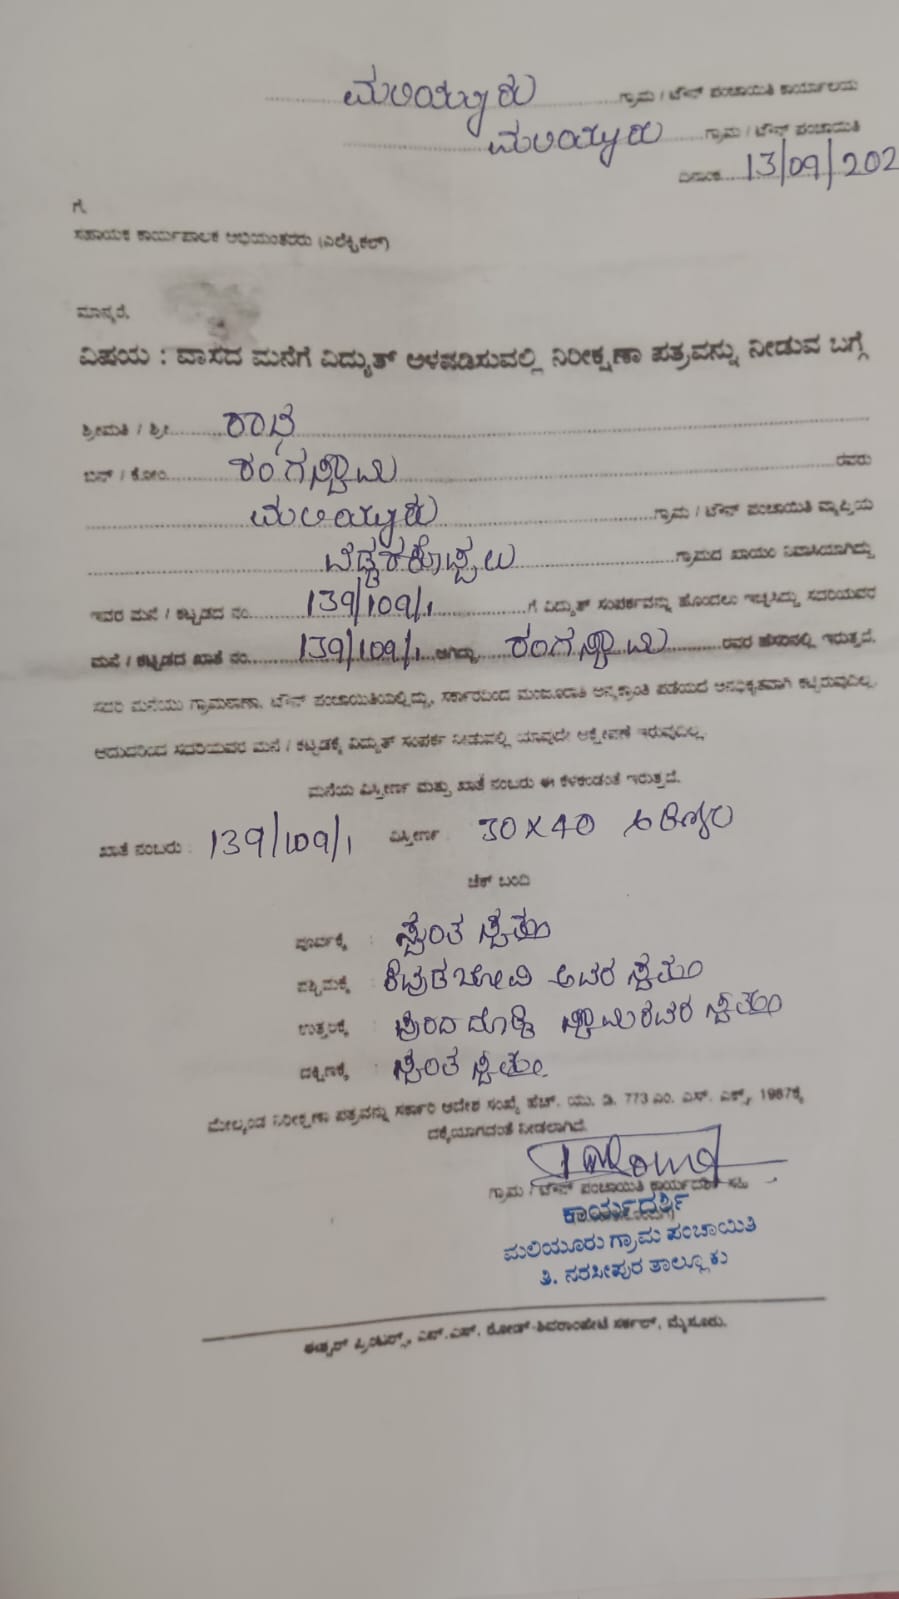 ಮಲಿಯೂರು ಗ್ರಾಮ / ಟೌನ್ ಪಂಚಾಯಿತಿ ಕಾರ್ಯಾಲಯ
ಮಲಿಯೂರು ಗ್ರಾಮ / ಟೌನ್ ಪಂಚಾಯಿತಿ
ದಿನಾಂಕ 13/09/202
ಗೆ,
ಸಹಾಯಕ ಕಾರ್ಯಪಾಲಕ ಅಭಿಯಂತರರು (ಎಲೆಕ್ಟ್ರಿಕಲ್)
ಮಾನ್ಯರೆ,
ವಿಷಯ : ವಾಸದ ಮನೆಗೆ ವಿದ್ಯುತ್ ಅಳವಡಿಸುವಲ್ಲಿ ನಿರೀಕ್ಷಣಾ ಪತ್ರವನ್ನು ನೀಡುವ ಬಗ್ಗೆ
ಶ್ರೀಮತಿ / ಶ್ರೀ
ಬಿನ್ / ಕೋಂ ರಂಗಸ್ವಾಮಿ ರವರು
ಮಲಿಯೂರು ಗ್ರಾಮ / ಟೌನ್ ಪಂಚಾಯಿತಿ ವ್ಯಾಪ್ತಿಯ
ಗ್ರಾಮದ ಖಾಯಂ ನಿವಾಸಿಯಾಗಿದ್ದು
ಇವರ ಮನೆ / ಕಟ್ಟಡದ ನಂ. 139/109/1 ಗೆ ವಿದ್ಯುತ್ ಸಂಪರ್ಕವನ್ನು ಹೊಂದಲು ಇಚ್ಛಿಸಿದ್ದು ಸದರಿಯವರ
ಮನೆ / ಕಟ್ಟಡದ ಖಾತೆ ನಂ. 139/109/1 ಆಗಿದ್ದು ರಂಗಸ್ವಾಮಿ ರವರ ಹೆಸರಿನಲ್ಲಿ ಇರುತ್ತದೆ.
ಸದರಿ ಮನೆಯು ಗ್ರಾಮಠಾಣಾ, ಟೌನ್ ಪಂಚಾಯಿತಿಯಲ್ಲಿದ್ದು, ಸರ್ಕಾರದಿಂದ ಮಂಜೂರಾತಿ ಅನ್ಯಕ್ರಾಂತಿ ಪಡೆಯದೆ ಅನಧಿಕೃತವಾಗಿ ಕಟ್ಟಿರುವುದಿಲ್ಲ.
ಆದುದರಿಂದ ಸದರಿಯವರ ಮನೆ / ಕಟ್ಟಡಕ್ಕೆ ವಿದ್ಯುತ್ ಸಂಪರ್ಕ ನೀಡುವಲ್ಲಿ ಯಾವುದೇ ಆಕ್ಷೇಪಣೆ ಇರುವುದಿಲ್ಲ.
ಮನೆಯ ವಿಸ್ತೀರ್ಣ ಮತ್ತು ಖಾತೆ ನಂಬರು ಈ ಕೆಳಕಂಡಂತೆ ಇರುತ್ತದೆ.
ಖಾತೆ ನಂಬರು : 139/109/1 ವಿಸ್ತೀರ್ಣ : 30 X 40
ಚೆಕ್ ಬಂದಿ
ಪೂರ್ವಕ್ಕೆ : ಸ್ವಂತ ಸ್ವತ್ತು
ಪಶ್ಚಿಮಕ್ಕೆ : ಅವರ ಸ್ವತ್ತು
ಉತ್ತರಕ್ಕೆ : ಸ್ವತ್ತು
ದಕ್ಷಿಣಕ್ಕೆ : ಸ್ವಂತ ಸ್ವತ್ತು
ಮೇಲ್ಕಂಡ ನಿರೀಕ್ಷಣಾ ಪತ್ರವನ್ನು ಸರ್ಕಾರಿ ಆದೇಶ ಸಂಖ್ಯೆ ಹೆಚ್. ಯು. ಡಿ. 773 ಎಂ. ಎನ್. ಎಕ್ಸ್. 1987ಕ್ಕೆ
ದಕ್ಕೆಯಾಗದಂತೆ ನೀಡಲಾಗಿದೆ.
ಗ್ರಾಮ / ಟೌನ್ ಪಂಚಾಯಿತಿ ಕಾರ್ಯದರ್ಶಿ ಸಹಿ
ಕಾರ್ಯದರ್ಶಿ
ಮಲಿಯೂರು ಗ್ರಾಮ ಪಂಚಾಯಿತಿ
ತಿ. ನರಸೀಪುರ ತಾಲ್ಲೂಕು
ಪ್ರಿಂಟರ್ಸ್, ಎನ್.ಎಸ್. ರೋಡ್-ಶಿವರಾಂಪೇಟೆ ಸರ್ಕಲ್, ಮೈಸೂರು.